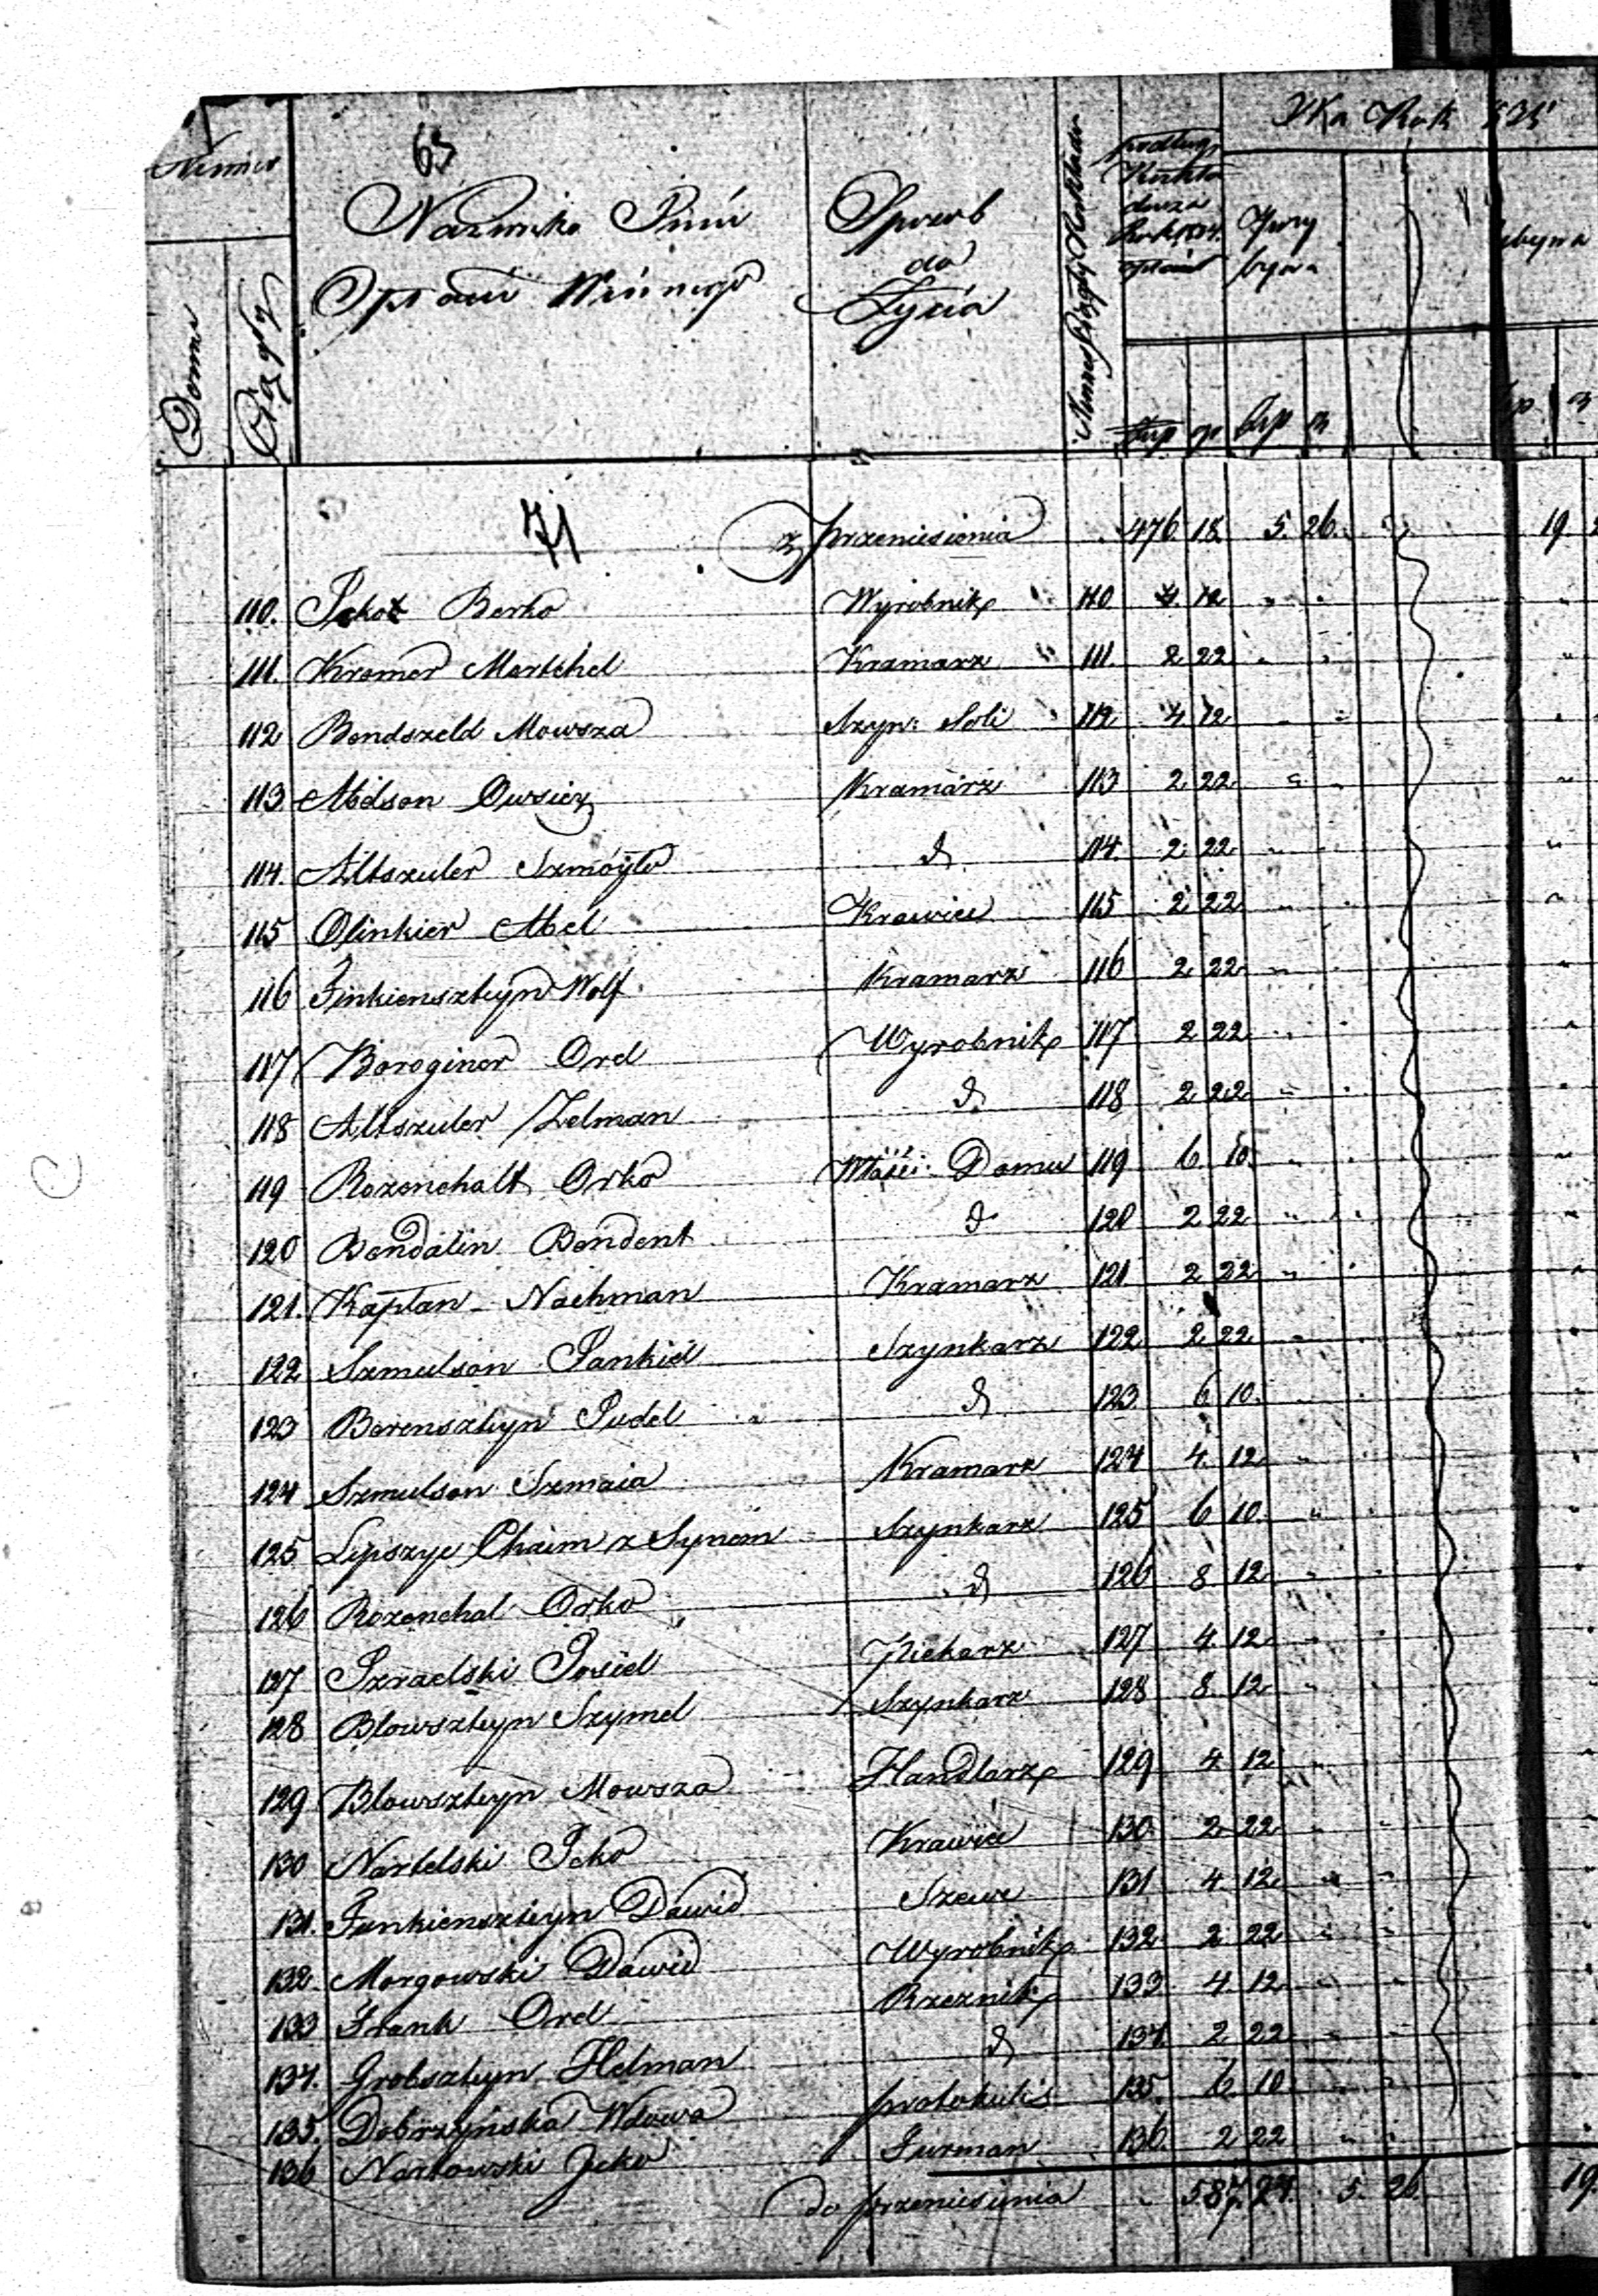 Numer
63
Nazwisko Imie
Opłacaiącego
Sposób
do
Życia
podług
Na Rok
Przy
bywa
ubywa
Domu
złp gr złp gr
71
z przeniesienia 476 18 5 26 19
110. Icko Berko Wyrobnik 110 4 12
111. Kromer Mortchel Kramarz 111 2 22
112 Bendszeld Mowsza Szyn: Soli 112 4 12
113 Abelson Owsiey Kramarz 113 2 22
114. Altszuler Szmoyło d 114 2 22
115 Olinkier Abel Krawiec 115 2 22
116 Finkienszteyn Wolf Kramarz 116 2 22
117 Boroginer Orel Wyrobnik 117 2 22
118 Altszuler Zelman d 118 2 22
119 Rozenchalt Orko Właści: Domu 119 6 10
120 Bendalin Bendent d 120 2 22
121. Kapłan Nachman Kramarz 121 2 22
122 Szmulson Jankiel Szynkarz 122 2 22
123 Berenszteyn Judel d 123 6 10
124 Szmulson Szmaia Kramarz 124 4 12
125 Lipszyc Chaim z Synem Szynkarz 125 6 10
126 Rozenchal Orko d 126 8 12
127 Izraelski Josiel Piekarz 127 4 12
128 Blowszteyn Szymel Szynkarz 128 8 12
129 Blowszteyn Mowsza Handlarz 129 4 12
130 Nartelski Icko Krawiec 130 2 22
131. Funkienszteyn Dawid Szewc 131 4 12
132. Morgowski Dawid Wyrobnik 132 2 22
133 Frank Orel Rzeznik 133 4 12
134. Grobszteyn Helman d 134. 2 22
135. Dobrzyńska Wdowa 135. 6 10
136 Nartowski Jcko Furman 136. 2 22
do przeniesienia 587. 24. 5. 26 19.